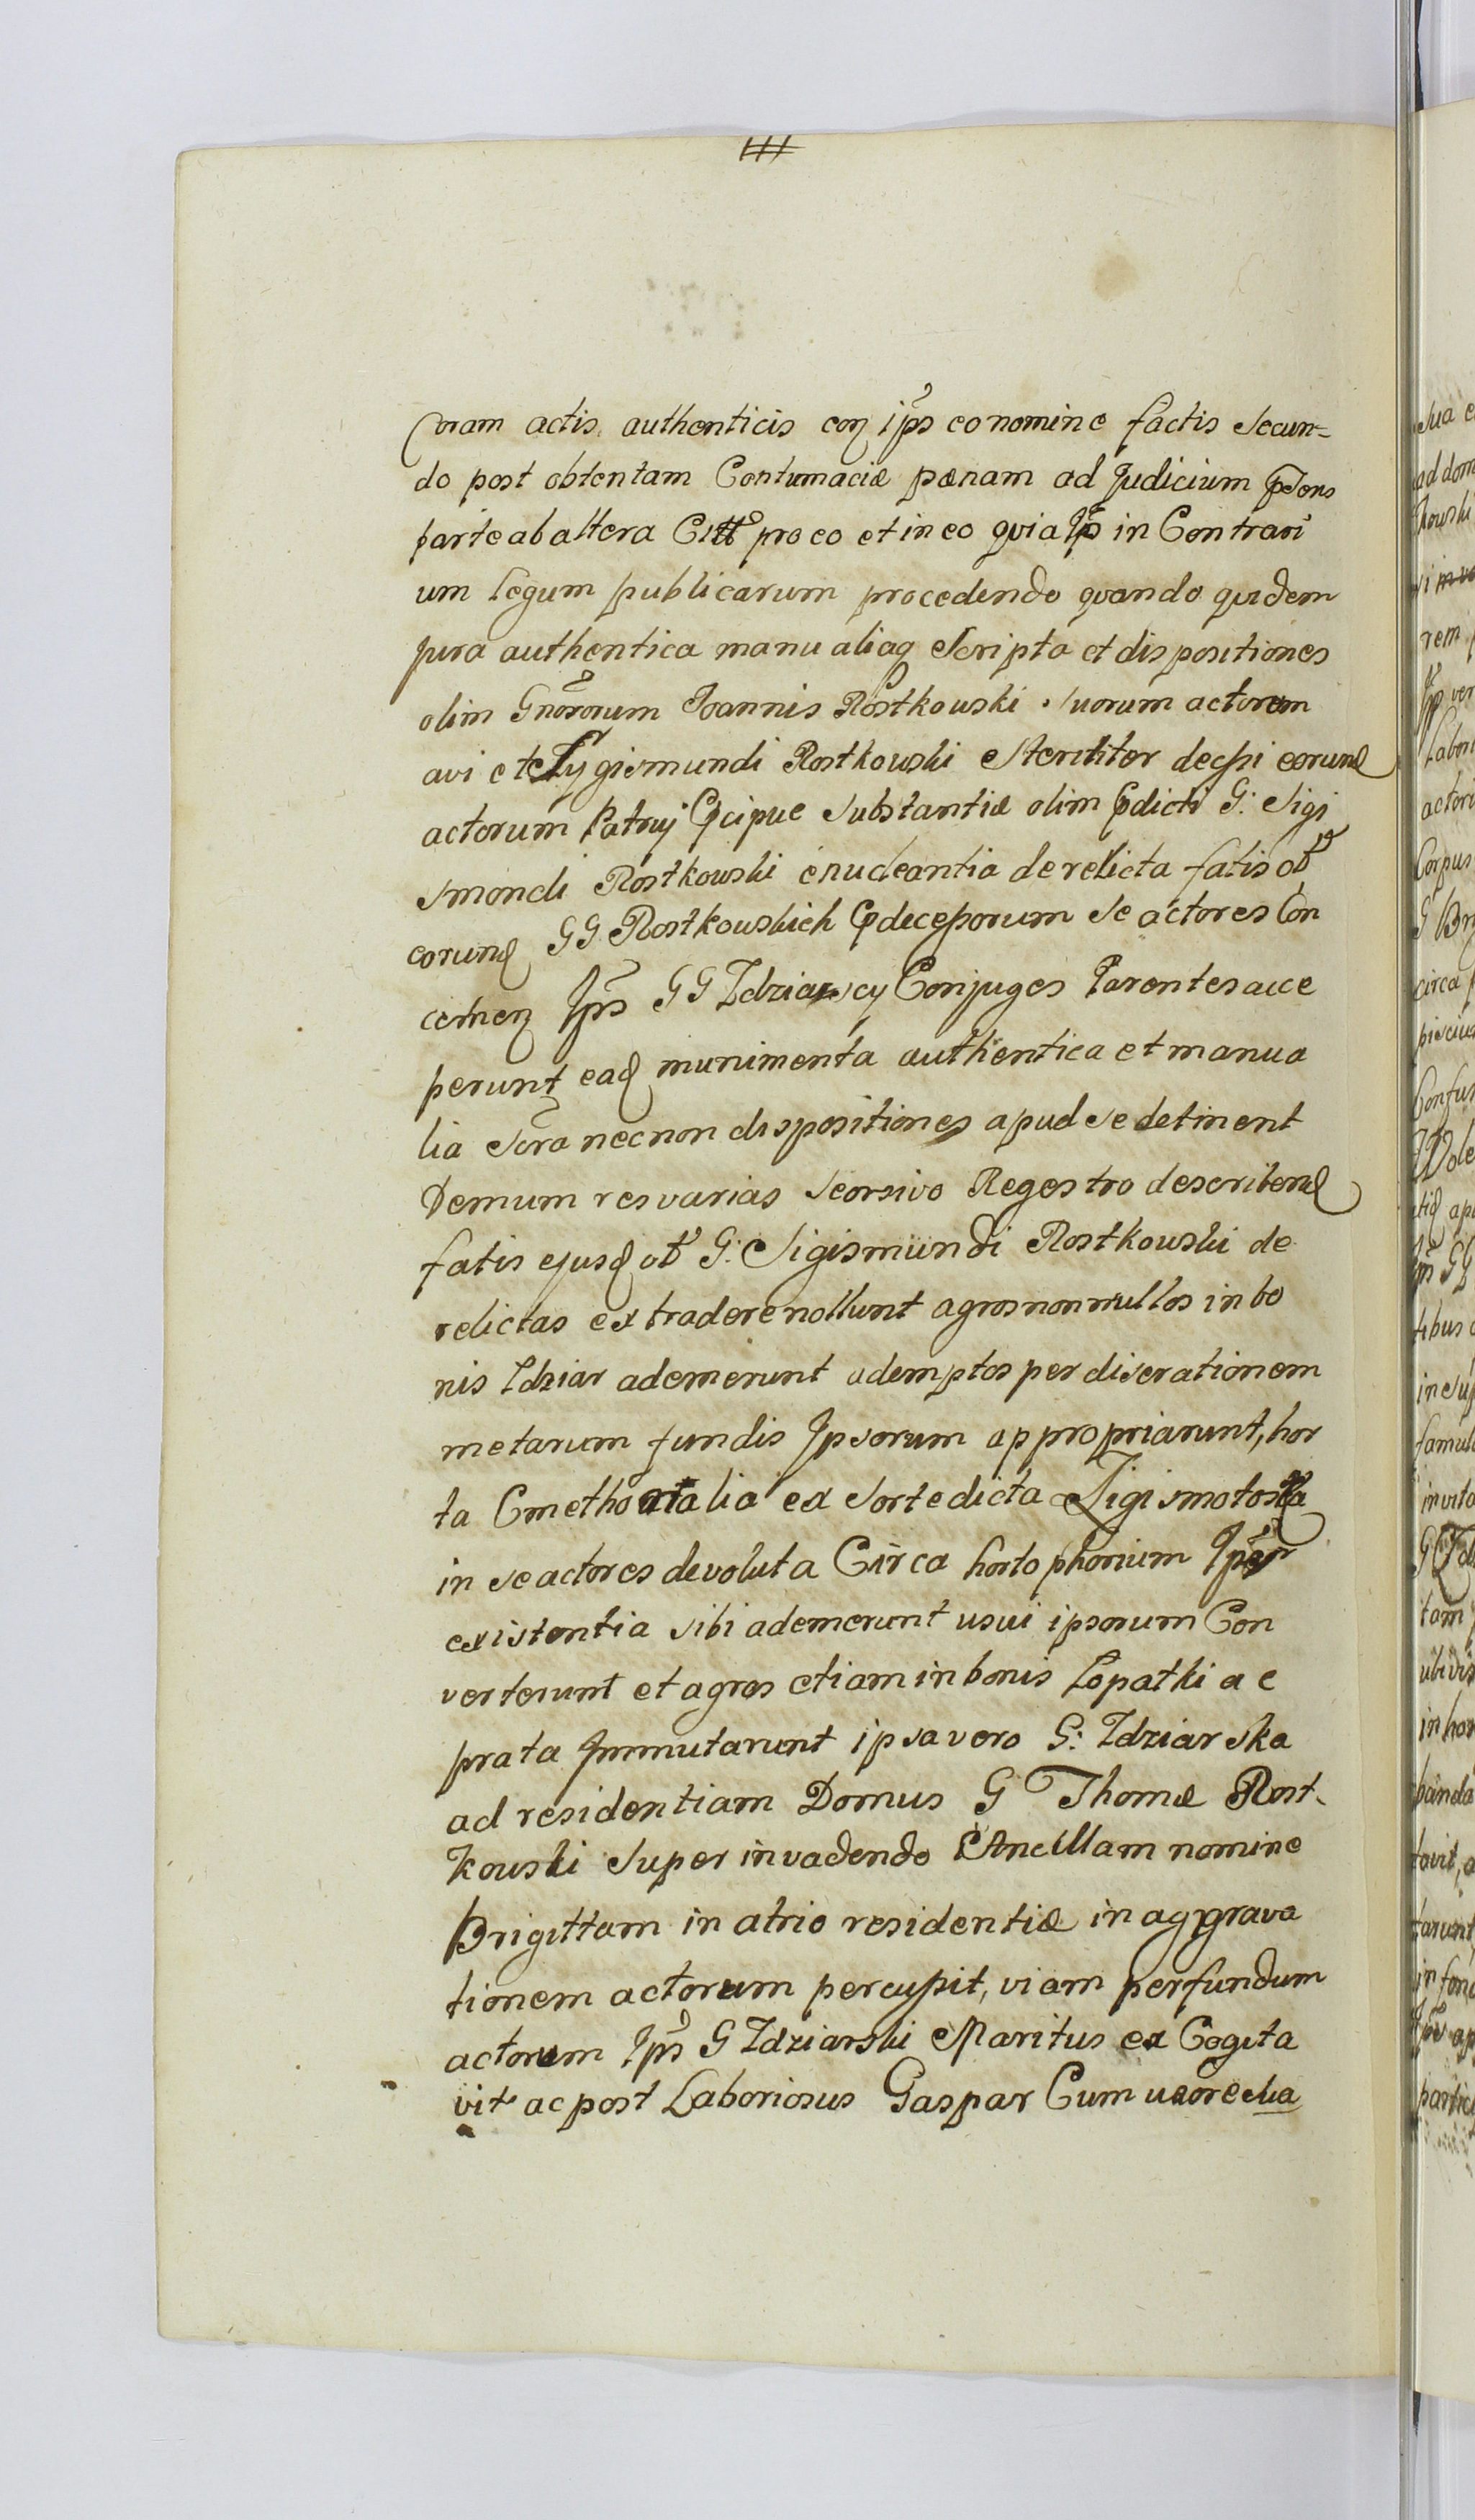 Coram actis authenticis coŋ ip̃s eo nomine factis Secun=
do post obtentam Contumaciæ pænam ad Judicium
parte ab altera Citt pro eo et in eo qvia Ip̃s in Contrari
um legum publicarum procedendo qvando qvidem
jura authentica manu aliaq Scripta et dispositiones
olim Gnõsorum Joannis Rostkowski Suorum actorum
avi et Zygismundi Rostkowski Steriliter decessi eorund
actorum Patruj Præcipue Substantiæ olim Prædicti G: Sigi
smondi Rostkowski derelicta fatis
eorund GG Rostkowskich Prædecessorum Se actores Con
cernen Ip̃s GG Zdziarscy Conjuges Parentes acce
perunt ead munimenta authentica et manua
lia Scra nec non dispositiones apud Se detinent
Demum res varias Seorsivo Regestro describend
fatis ejusd G: Sigismundi Rostkowski de
relictas extradere nollunt agros nonnullos in bo
nis Zdziar ademerunt ademptos per diserationem
metarum fundis Ipsorum appropriarunt, hor
ta Cmethonalia ex Sorte dicta Sigismotoska
in Se actores devoluta Circa horto phorium
existentia Sibi ademerunt usui ipsorum Con
verterunt et agros etiam in bonis Lopatki ac
prata Immutarunt ipsa vero G: Zdziarska
ad residentiam Domus G Thomæ Rost-
kowski Super invadendo Ancillam nomine
Brigittam in atrio residentiæ in aggrava
tionem actorum percussit, viam per fundum
actorum Ip̃s G Zdziarski Maritus ex Cogita
vit ac post Laboriosus Gaspar Cum uxore Sua